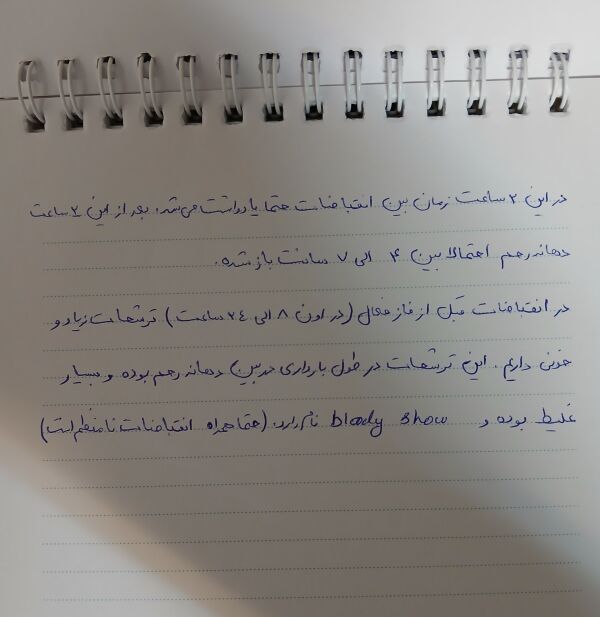 در این ۲ ساعت زمان بین انقباضات حتما یادداشت می‌شد. بعد از این ۲ ساعت
دهانه رحم احتمالا بین ۴ الی ۷ سانت باز شده.
در انقباضات قبل از فاز فعال (در اون ۸ الی ۲۴ ساعت) ترشحات زیاد و
خونی داریم. این ترشحات در طول بارداری در بین دهانه رحم بوده و بسیار
غلیظ بوده و bloody show نام دارد. (حتما همراه انقباضات نامنظم است)